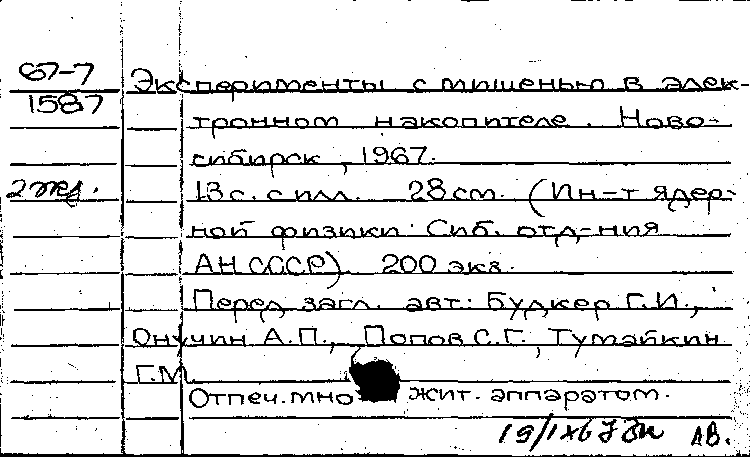 67-7
1587
Эксперименты с мишенью в элек-
тронном накопителе. Ново-
сибирск, 1967.
2 экз.
13 с. с илл. 28 см. (Ин-т ядер-
ной физики. Сиб. отд-ния
АН СССР). 200 экз.
Перед загл. авт: Будкер Г.И.,
Онучин А.П., Попов С.Г., Тумайкин
Г.М.
Отпеч. мно жит. аппаратом.
АВ.